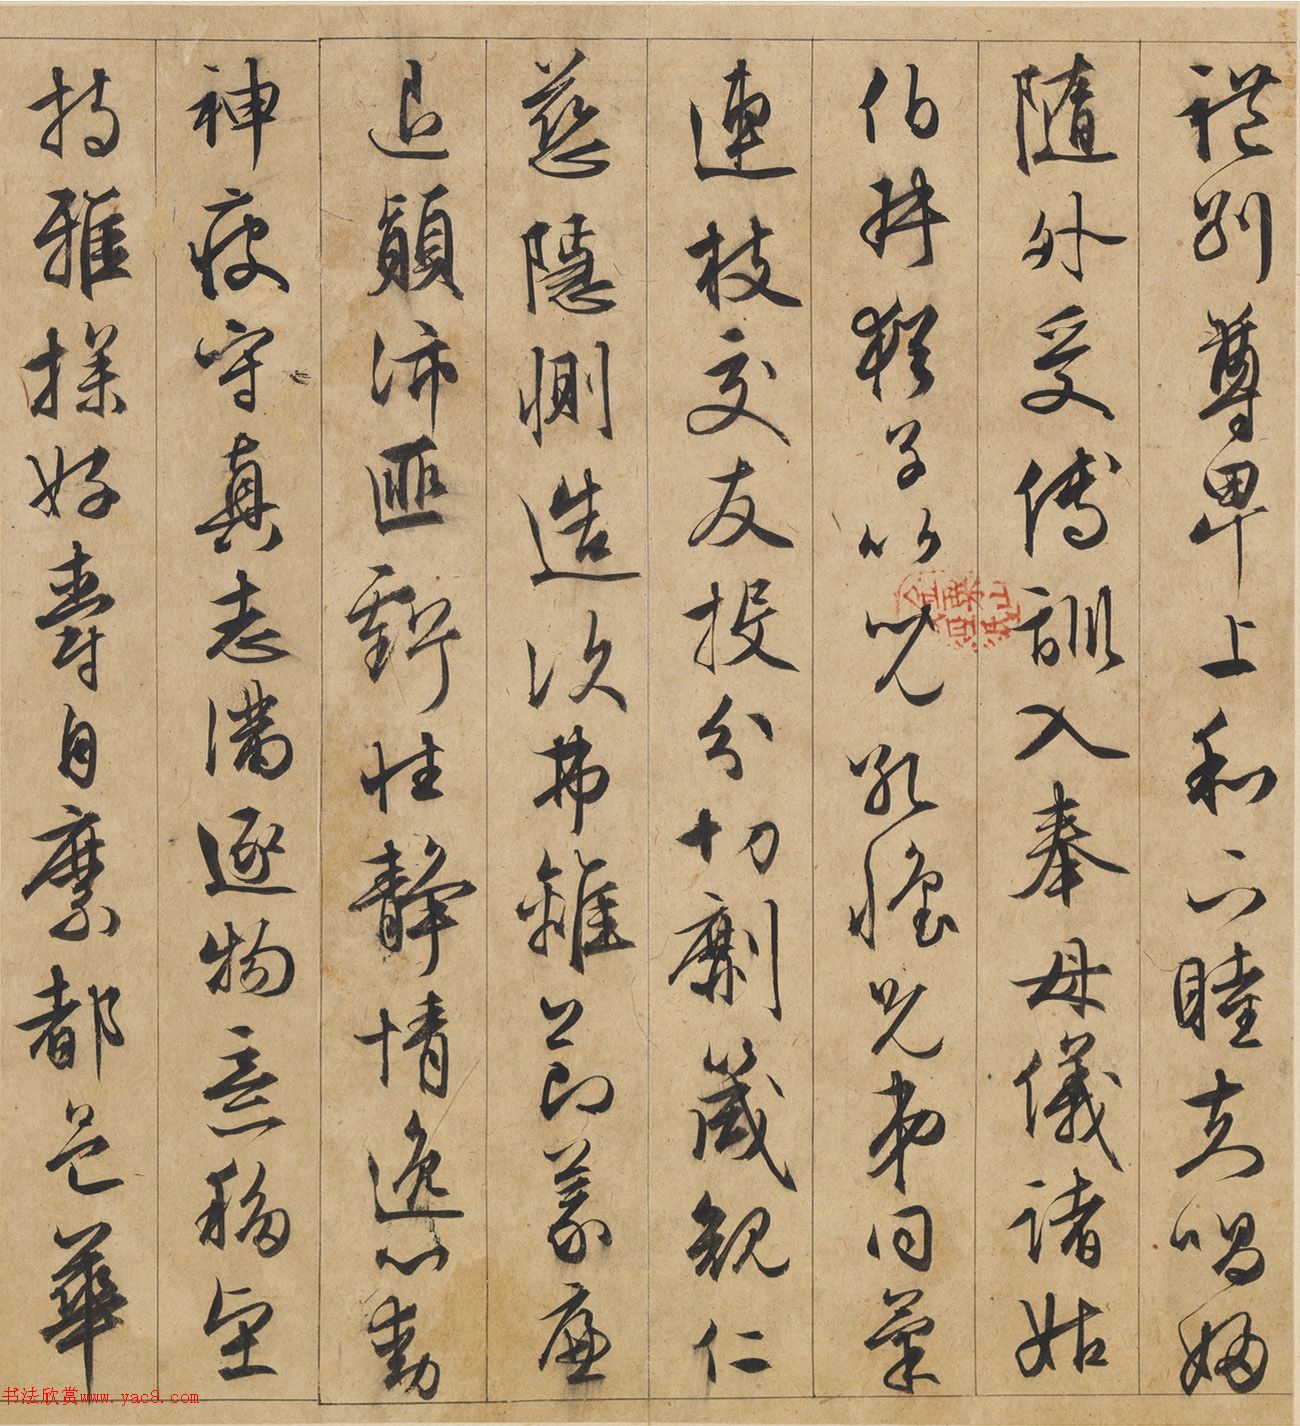 禮別尊卑上和下睦夫唱婦
隨外受傅訓入奉母儀諸姑
伯叔猶子比兒孔懷兄弟同氣
連枝交友投分切劘箴規仁
慈隱惻造次弗離節義廉
退顛沛匪虧性靜情逸心動
神疲守真志滿逐物意移堅
持雅操好爵自縻都邑華
书法欣赏www.yac8.com